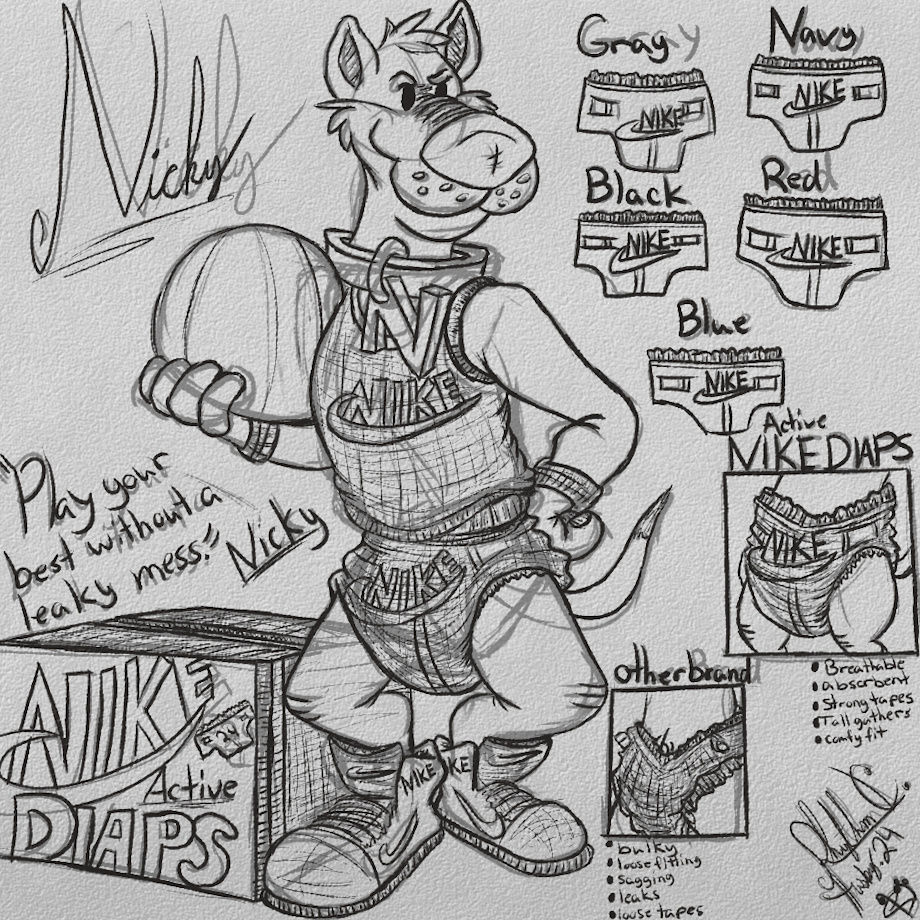 Nicky
Gray
NIKE
Navy
NIKE
Black
NIKE
Red
NIKE
Blue
NIKE
N
NIKE
NIKE
NIKE
NIKE
"Play your
best without a
leaky mess."
Nicky
NIKE
24
Active
DIAPS
Active
NIKE DIAPS
NIKE
• Breathable
• absorbent
• Strong tapes
• Tall gathers
• comfy fit
Other Brand
• bulky
• loose fitting
• sagging
• leaks
• loose tapes